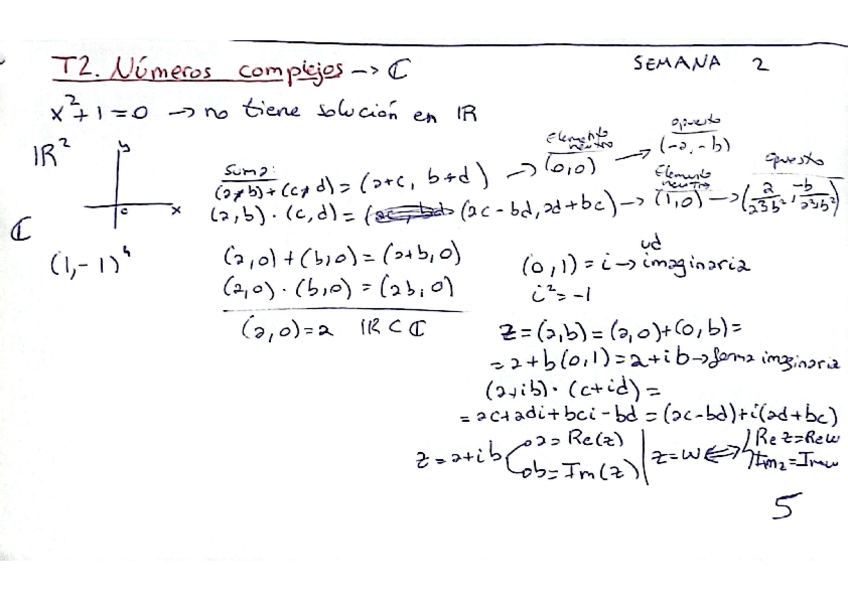 T2. Números complejos → ℂ
SEMANA 2
x²+1=0 → no tiene solución en ℝ
ℝ²
b
c
x
ℂ
(1,-1)⁴
Suma:
(a,b)+(c,d)=(a+c, b+d) → (0,0) → (-a,-b)
Elemento neutro
opuesto
(a,b)·(c,d)= (ac-bd, ad+bc) → (1,0) →
Elemento neutro
opuesto
(a,0)+(b,0)=(a+b,0)
(a,0)·(b,0)=(ab,0)
(a,0)=a ℝ⊂ℂ
ud
(0,1)=i → imaginaria
i²=-1
z=(a,b)=(a,0)+(0,b)=
=a+b(0,1)=a+ib → forma imaginaria
(a+ib)·(c+id)=
=ac+adi+bci-bd=(ac-bd)+i(ad+bc)
z=a+ib
a=Re(z)
b=Im(z)
z=w ⟺
Re z=Re w
Im z=Im w
5